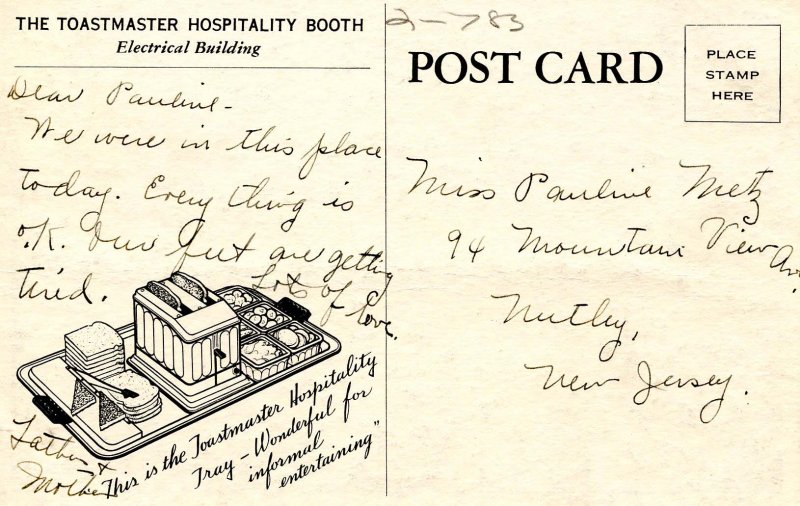 THE TOASTMASTER HOSPITALITY BOOTH
Electrical Building
Dear Pauline-
We were in this place
today. Every thing is
O.K. Our feet are getting
tired. Lots of Love.
Father +
Mother
"This is the Toastmaster Hospitality
Tray - Wonderful for
informal
entertaining"
2-783
POST CARD
PLACE
STAMP
HERE
Miss Pauline Metz
94 Mountain View Ave.
Nutley,
New Jersey.